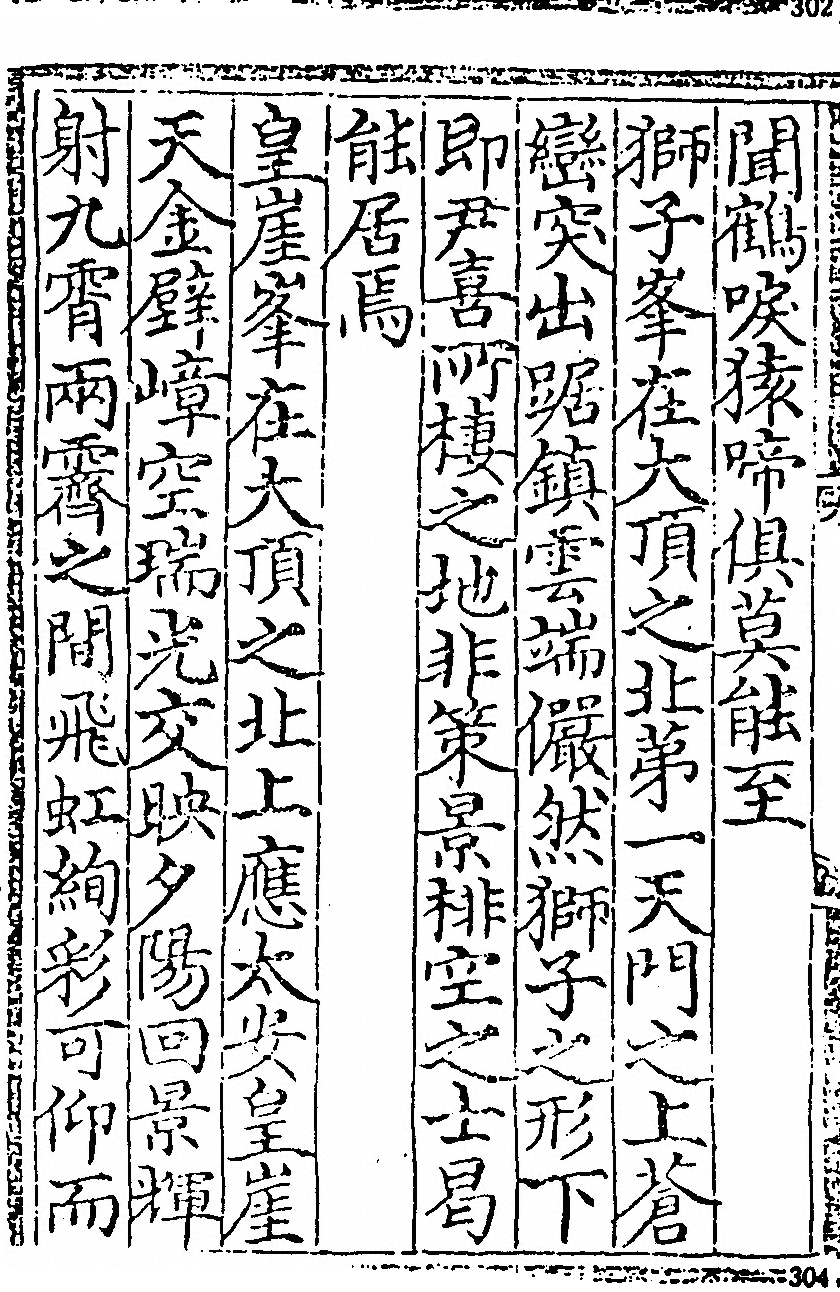 302
聞鶴唳猿啼俱莫能至
獅子峯在大頂之北第一天門之上蒼
巒突出踞鎮雲端儼然獅子之形下
即尹喜所棲之地非策景排空之士曷
能居焉
皇崖峯在大頂之北上應太安皇崖
天金璧嶂空瑞光交映夕陽回景輝
射九霄兩霽之間飛虹絢彩可仰而
304